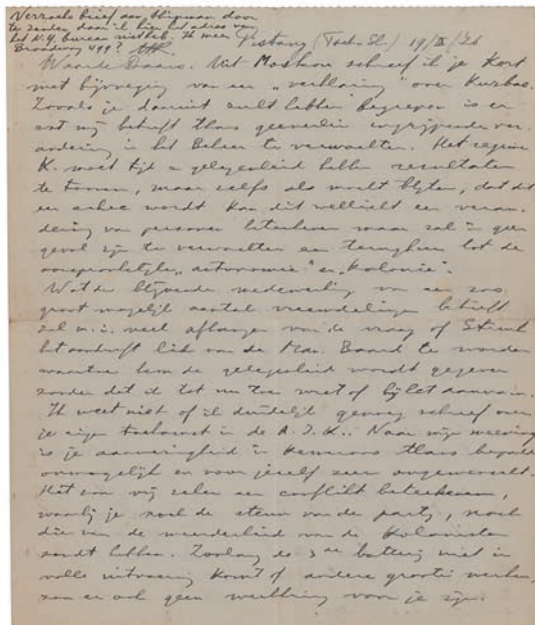 Verzoeke brief aan Slipman door
te zenden daar ik hier het adres van
het N.Y. bureau niet heb. Ik meen
Broadway 499?
Pistany (Tsch. Sl.) 19/III/26
Waarde Baars. Uit Moskou schreef ik je kort
met bijvoeging van een „verklaring" over Kuzbas.
Zooals je daaruit zult hebben begrepen is er
wat mij betreft thans geenerlei ingrijpende ver-
andering in het Beheer te verwachten. Het regime
K. moet tijd en gelegenheid hebben resultaten
te toonen, maar zelfs als mocht blijken, dat dit
een echec wordt kan dit wellicht een veran-
dering van personen beteekenen maar zal in geen
geval zijn te verwachten een terugkeer tot de
oorspronkelijke „autonomie" en „kolonie".
Wat de blijvende medewerking van een zoo
groot mogelijk aantal vreemdelingen betreft
zal m.i. veel afhangen van de vraag of
het aandurft lid van de Man. Board te worden
waartoe hem de gelegenheid wordt gegeven
zonder dat ik tot nu toe weet of hij het aannam.
Ik weet niet of ik duidelijk genoeg schreef over
je eigen toekomst in de A.I.K.. Naar mijn meening
is je aanwezigheid in Kemerovo thans bepaald
onmogelijk en voor jezelf zeer ongewenscht.
Het zou vrij zeker een conflikt beteekenen,
waarbij je noch de steun van de party, noch
die van de meerderheid van de Kolonisten
zoudt hebben. Zoolang de 3de batterij niet in
volle uitvoering komt of andere groote werken,
zou er ook geen werkkring voor je zijn.